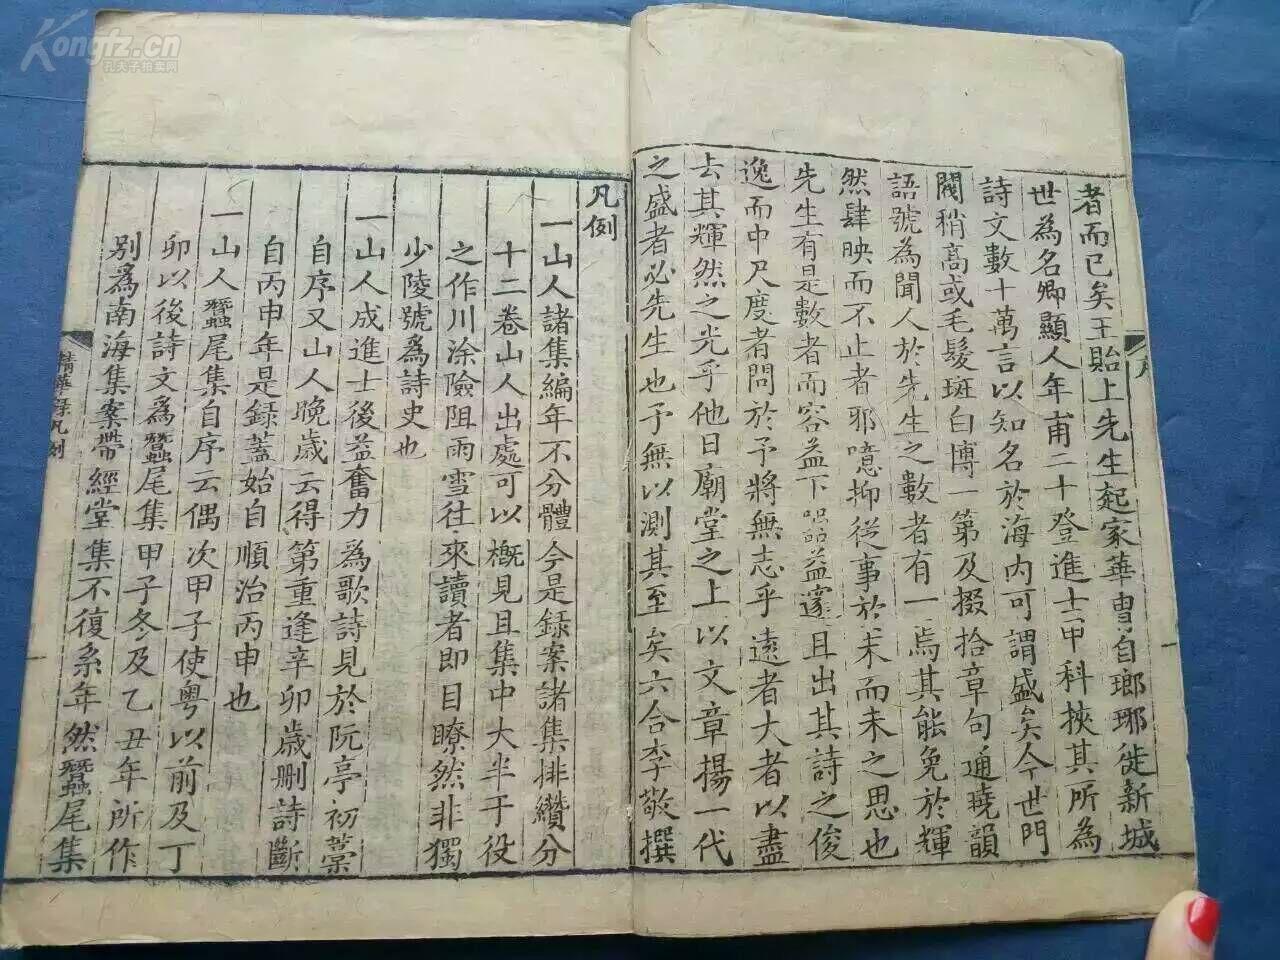 Kongfz.cn
孔夫子拍卖网
者而已矣王貽上先生起家華胄自瑯琊徙新城
世為名卿顯人年甫二十登進士甲科挾其所為
詩文數十萬言以知名於海内可謂盛矣今世門
閥稍高或毛髮斑白博一第及掇拾章句通曉韻
語號為聞人於先生之數者有一焉其能免於輝
然肆映而不止者邪噫抑從事於末而未之思也
先生有是數者而容益下㗊益邃且出其詩之俊
逸而中尺度者問於予將無志乎遠者大者以盡
去其輝然之光乎他日廟堂之上以文章揚一代
之盛者必先生也予無以測其至矣六合李敬撰
凡例
一山人諸集編年不分體今是録案諸集排纘分
十二卷山人出處可以概見且集中大半于役
之作川涂險阻雨雪往來讀者即目瞭然非獨
少陵號為詩史也
一山人成進士後益奮力為歌詩見於阮亭初藁
自序又山人晚歲云得第重逢辛卯歲删詩斷
自丙申年是録蓋始自順治丙申也
一山人蠶尾集自序云偶次甲子使粤以前及丁
卯以後詩文為蠶尾集甲子冬及乙丑年所作
別為南海集案帶經堂集不復系年然蠶尾集
精華録凡例